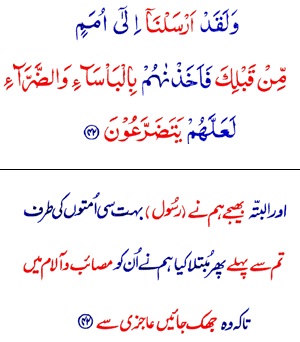 وَلَقَدْ اَرْسَلْنَاۤ اِلٰۤى اُمَمٍ
مِّنْ قَبْلِكَ فَاَخَذْنٰهُمْ بِالْبَاْسَآءِ وَالضَّرَّآءِ
لَعَلَّهُمْ يَتَضَرَّعُوْنَ ﴿۴۲﴾
اور البتّہ بھیجے ہم نے (رسُول) بہت سی اُمتوں کی طرف
تم سے پہلے پھر مُبتلا کیا ہم نے اُن کو مصائب و آلام میں
تاکہ وہ جھک جائیں عاجزی سے ﴿۴۲﴾